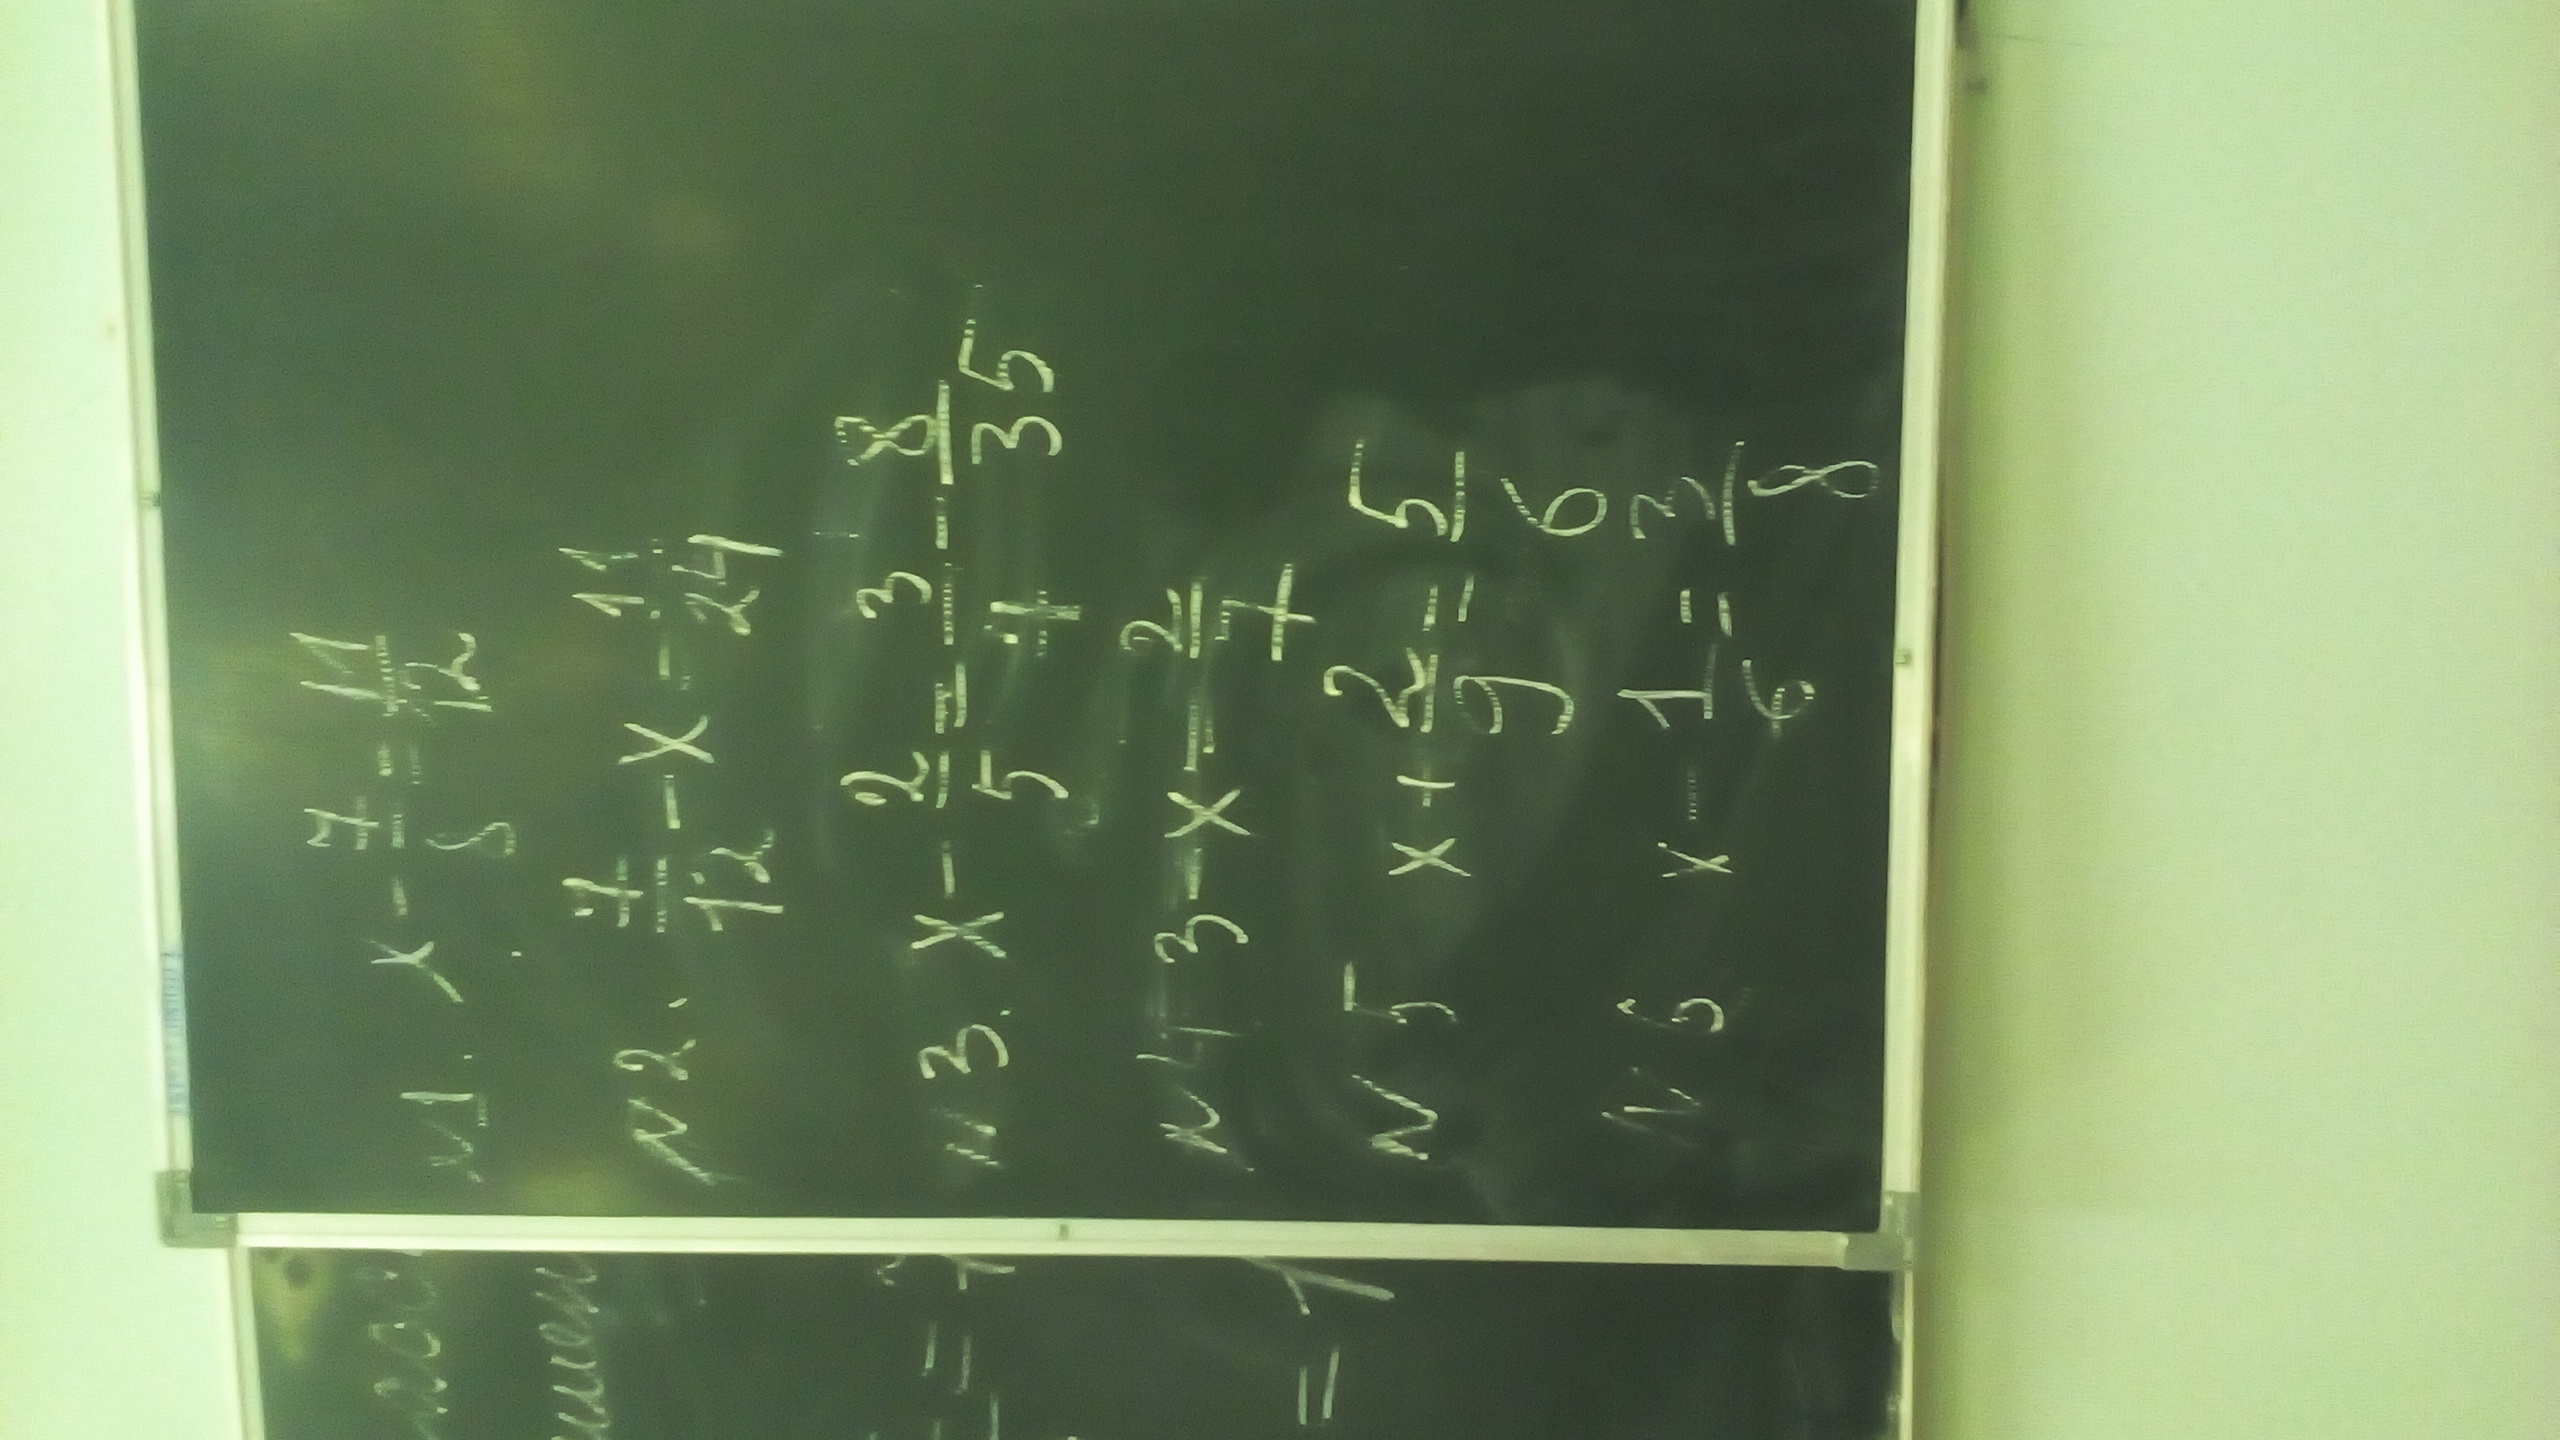 N1. y - 7/8 = 11/12
N2. 7/12 - x = 11/24
N3. x - 2/5 = 3/7 - 8/35
N4 3 - x = 2/7
N5 x + 2/9 = 5/6
N6 x - 1/6 = 3/8